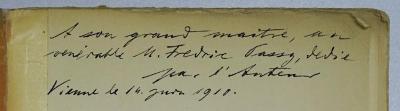 A son grand maître, au
vénérable M. Fredric Passy, dédié
par l'Auteur
Vienne le 14. juin 1910.